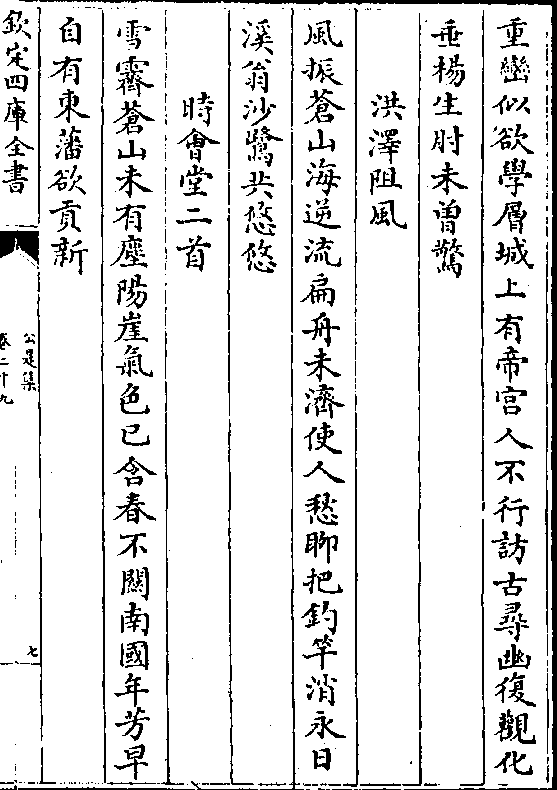 重巒似欲學層城上有帝宫人不行訪古尋幽復觀化
垂楊生肘未曽驚
洪澤阻風
風振蒼山海逆流扁舟未濟使人愁聊把釣竿消永日
溪翁沙鷺共悠悠
時㑹堂二首
雪霽蒼山未有塵陽崖氣色已含春不闗南國年芳早
自有東藩欲貢新
欽定四庫全書
公是集
卷二十九
七